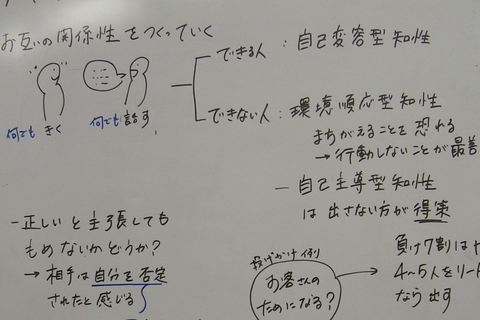 お互いの関係性をつくっていく
できる人 : 自己変容型知性
何でも きく
何でも 話す
できない人 : 環境順応型知性
まちがえることを恐れる
→ 行動しないことが最善
— 自己主導型知性
は 出さない方が 得策
— 正しいと主張しても
もめないかどうか?
→ 相手は自分を否定
されたと感じる
投げかけ例
お客さんの
ためになる?
負け7割は
4〜5人をリート
なら出す